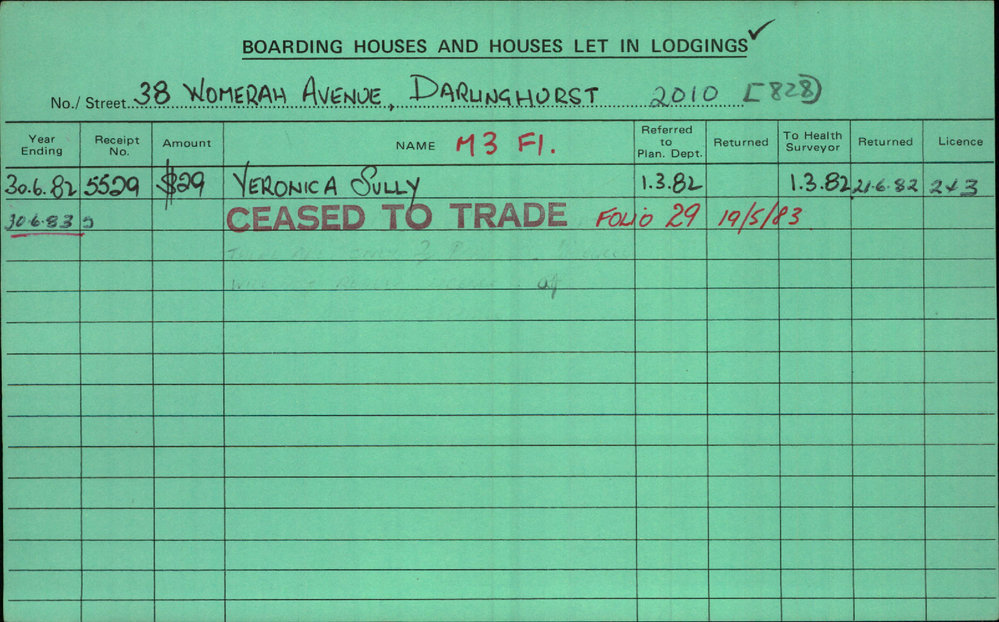 BOARDING HOUSES AND HOUSES LET IN LODGINGS ✓
No./ Street 38 WOMERAH AVENUE, DARLINGHURST 2010 [828]
Year Ending Receipt No. Amount NAME M3 F1. Referred to Plan. Dept. Returned To Health Surveyor Returned Licence
30.6.82 5529 $29 VERONICA SULLY 1.3.82 1.3.82 21.6.82
30.6.83 CEASED TO TRADE FOLIO 29 19/5/83